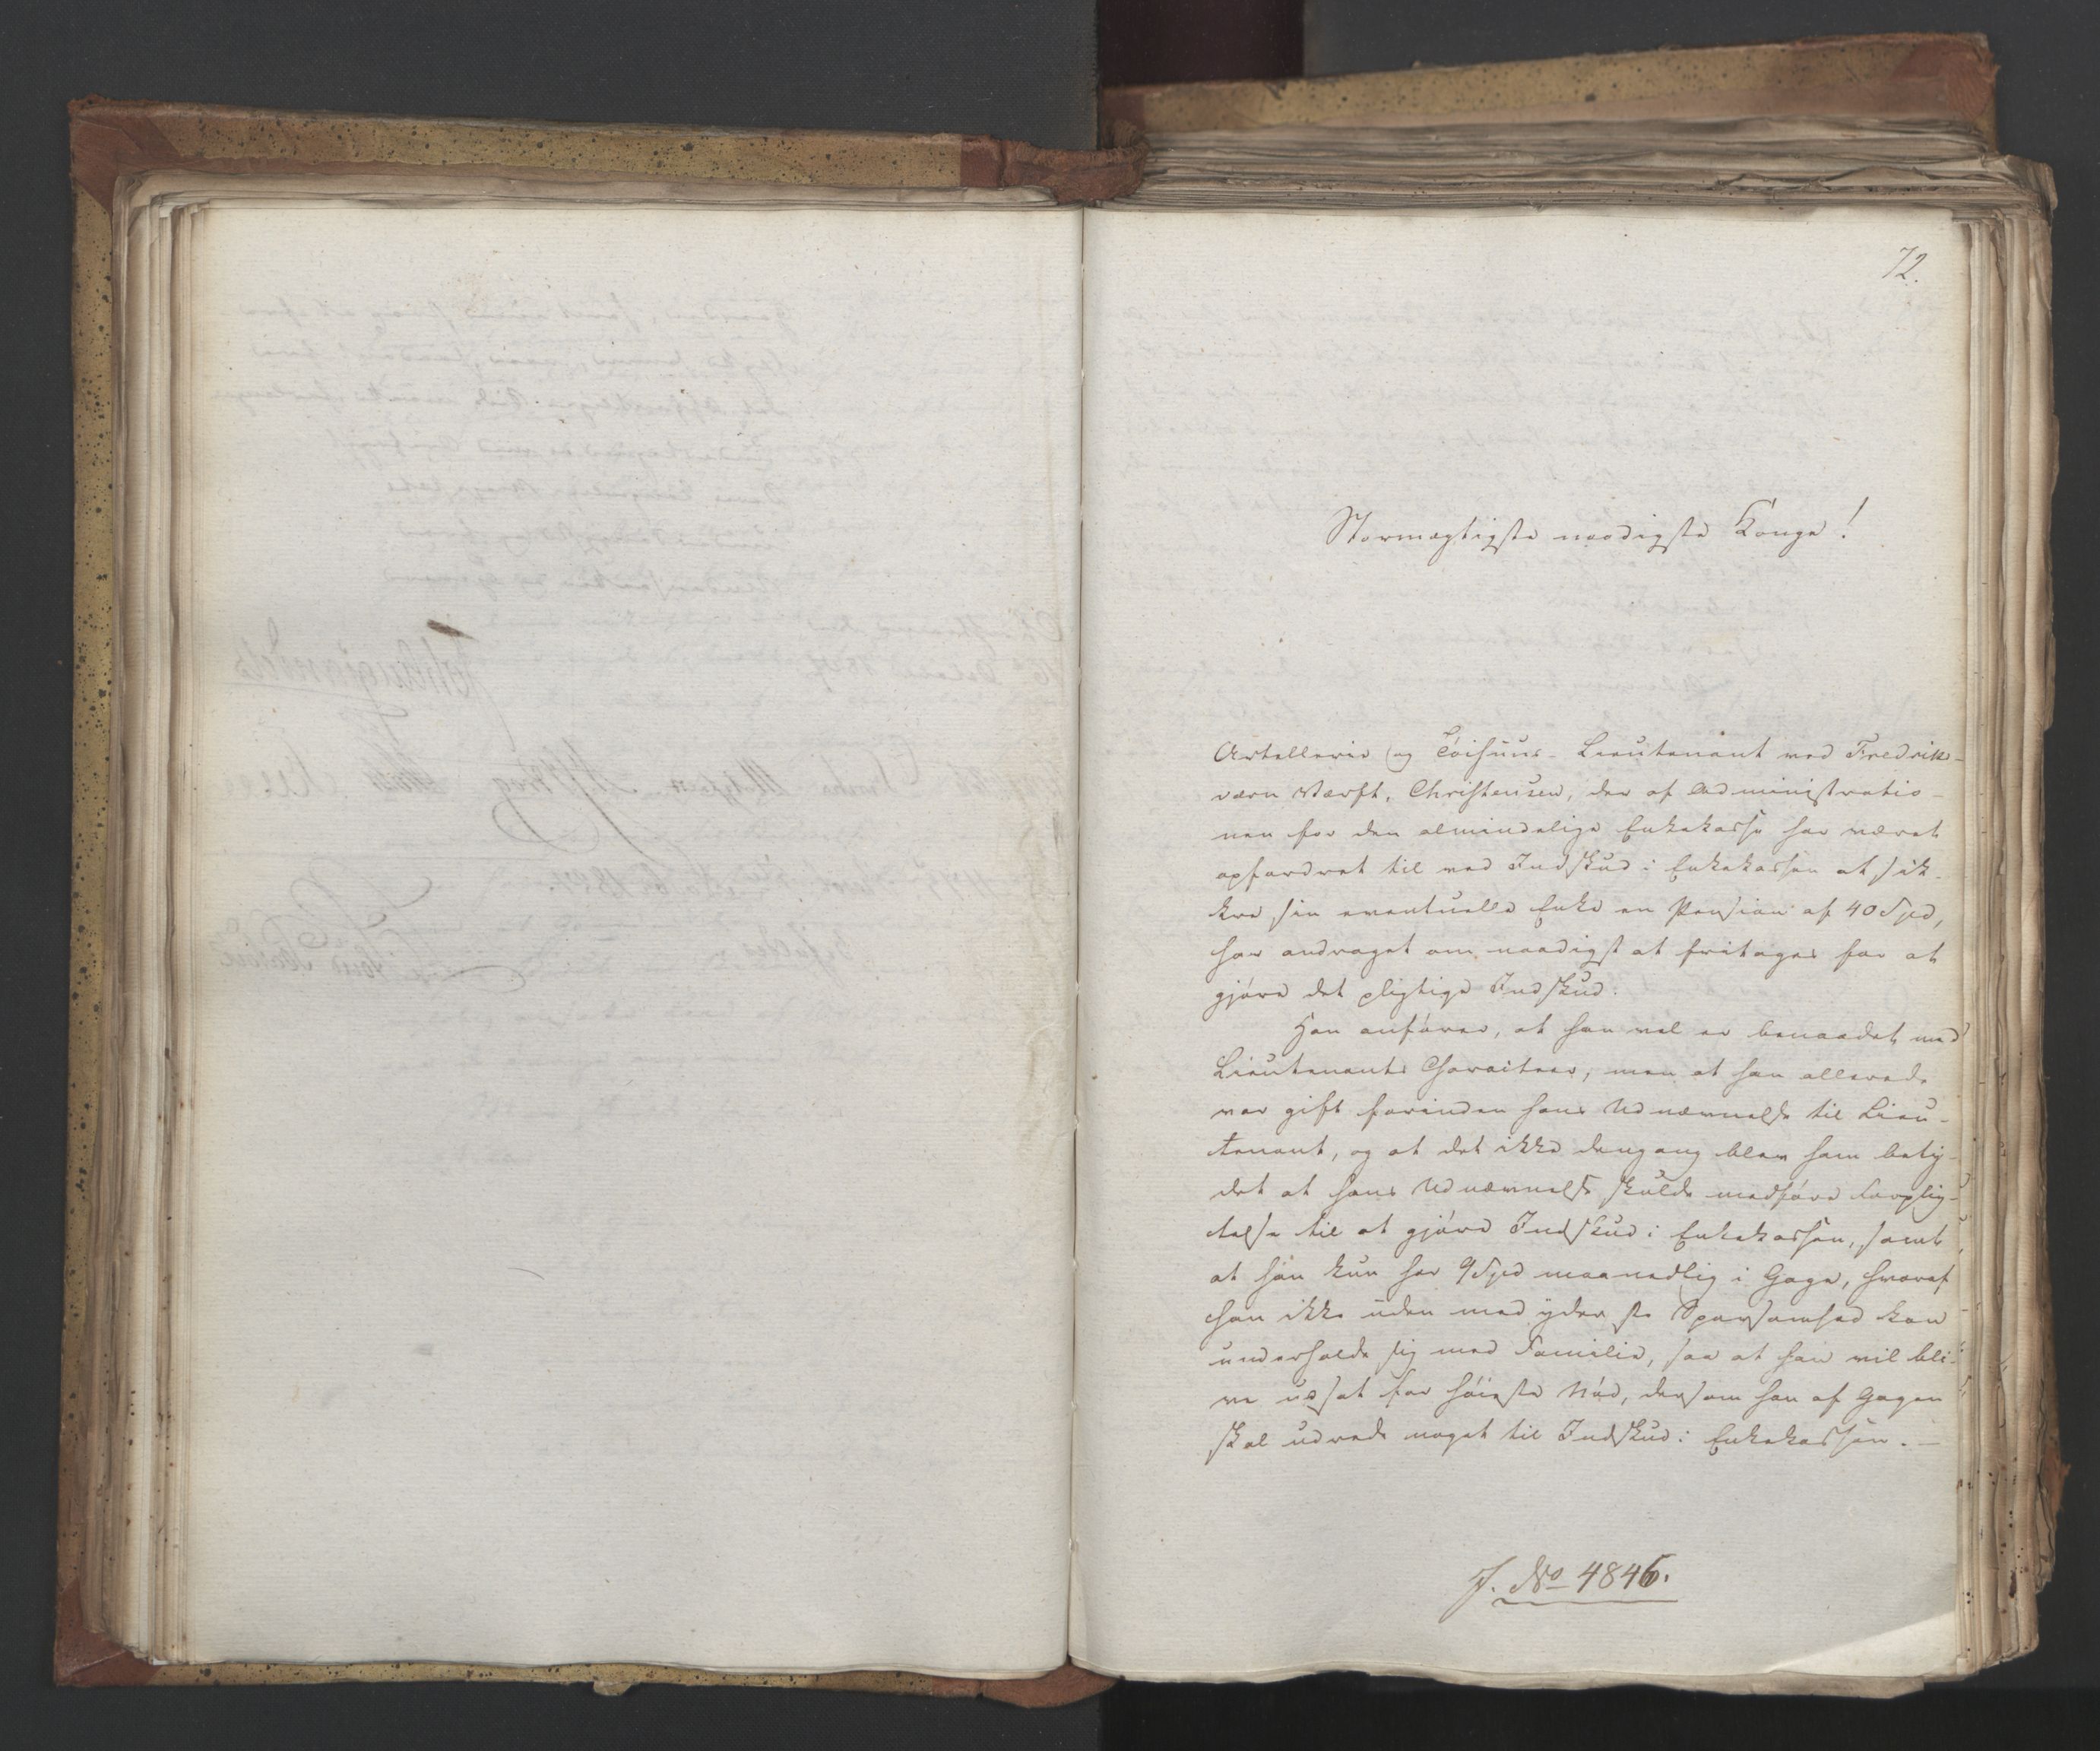 72.
Stormægtigste naadigste Konge!
Artellerie og Töihuus-Lieutenant ved Fredriks-
værn Værft, Christensen, der af Administratio-
nen for den almindelige Enkekasse har været
opfordret til ved Indskud i Enkekassen at sik-
kre sin eventuelle Enke en Pension af 40 Spd,
har andraget om naadigst at fritages for at
gjöre det pligtige Indskud.
Han anförer, at han vel er benaadet med
Lieutenants Charaiteer, men at han allerede
var gift forinden hans Udnævnelse til Lieu-
tenant, og at det ikke dengang blev ham bety-
det at hans Udnævnelse skulde medföre Forplig-
telse til at gjöre Indskud i Enkekassen, samt
at han kun har 9 Spd maanedlig i Gage, hvoraf
han ikke uden med yderste Sparsomhed kan
underholde sig med Familie, saa at han vil bli-
ve udsat for höieste Nöd, dersom han af Gagen
skal udrede noget til Indskud i Enkekassen. —
J. No 4846.